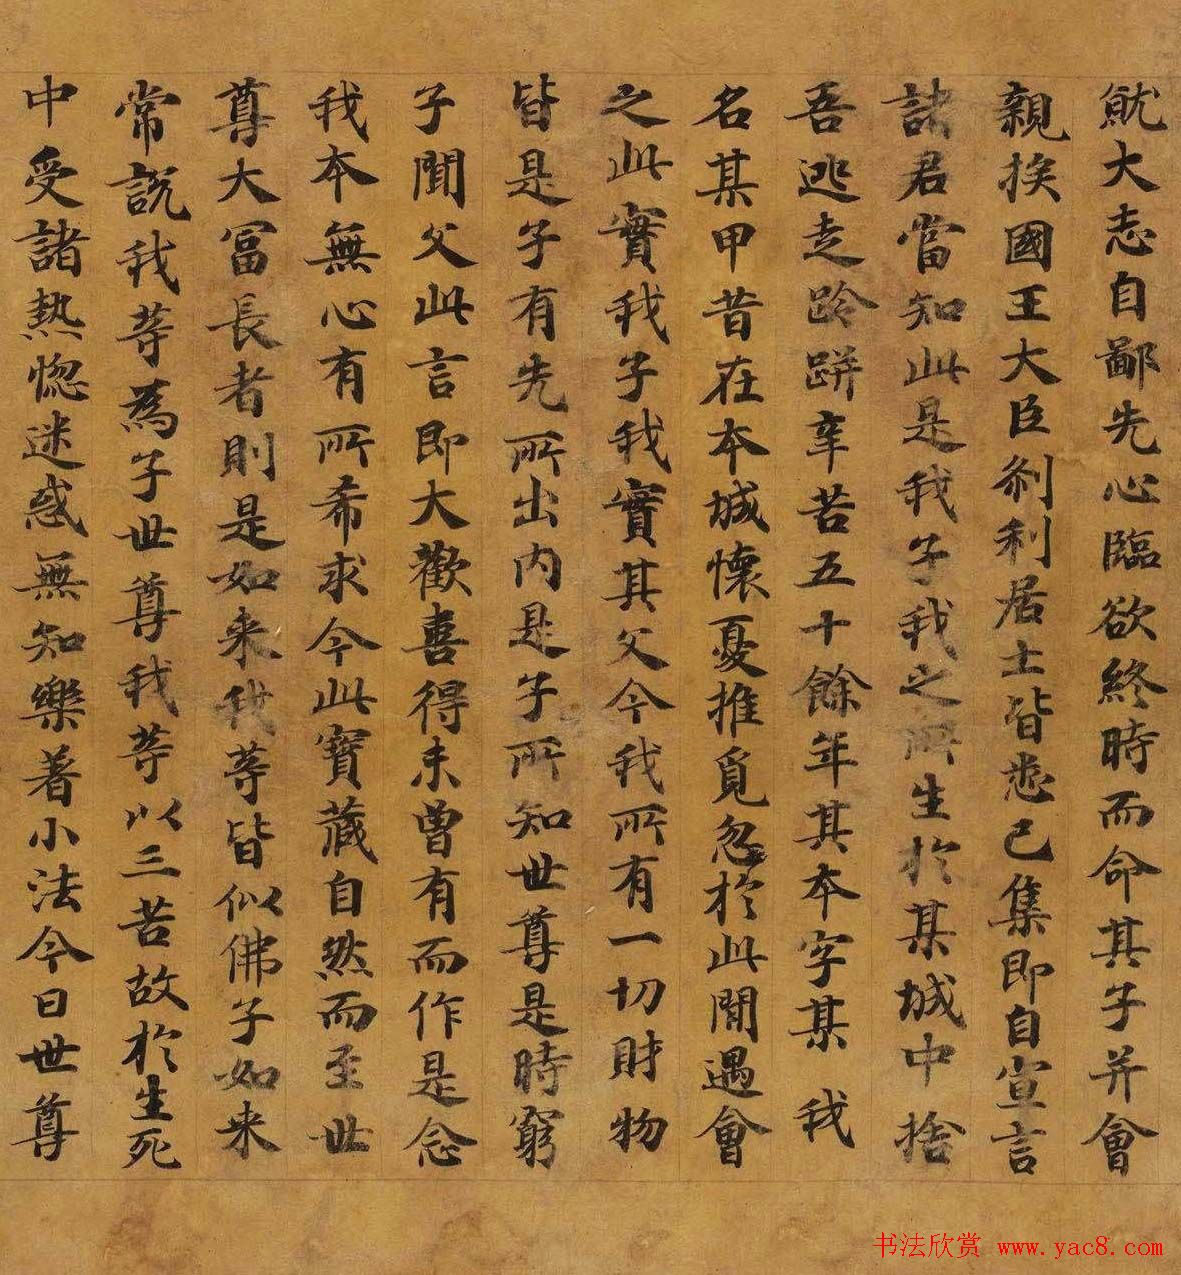 就大志自鄙先心臨欲終時而命其子并會
親挨國王大臣剎利居士皆悉已集即自宣言
諸君當知此是我子我之所生於某城中捨
吾逃走跉跰辛苦五十餘年其本字某 我
名某甲昔在本城懷憂推覓忽於此間遇會
之此實我子我實其父今我所有一切財物
皆是子有先所出内是子所知世尊是時窮
子聞父此言即大歡喜得未曾有而作是念
我本無心有所希求今此寶藏自然而至世
尊大冨長者則是如来我等皆似佛子如来
常説我等為子世尊我等以三苦故於生死
中受諸熱惱迷惑無知樂著小法今日世尊
书法欣赏 www.yac8.com